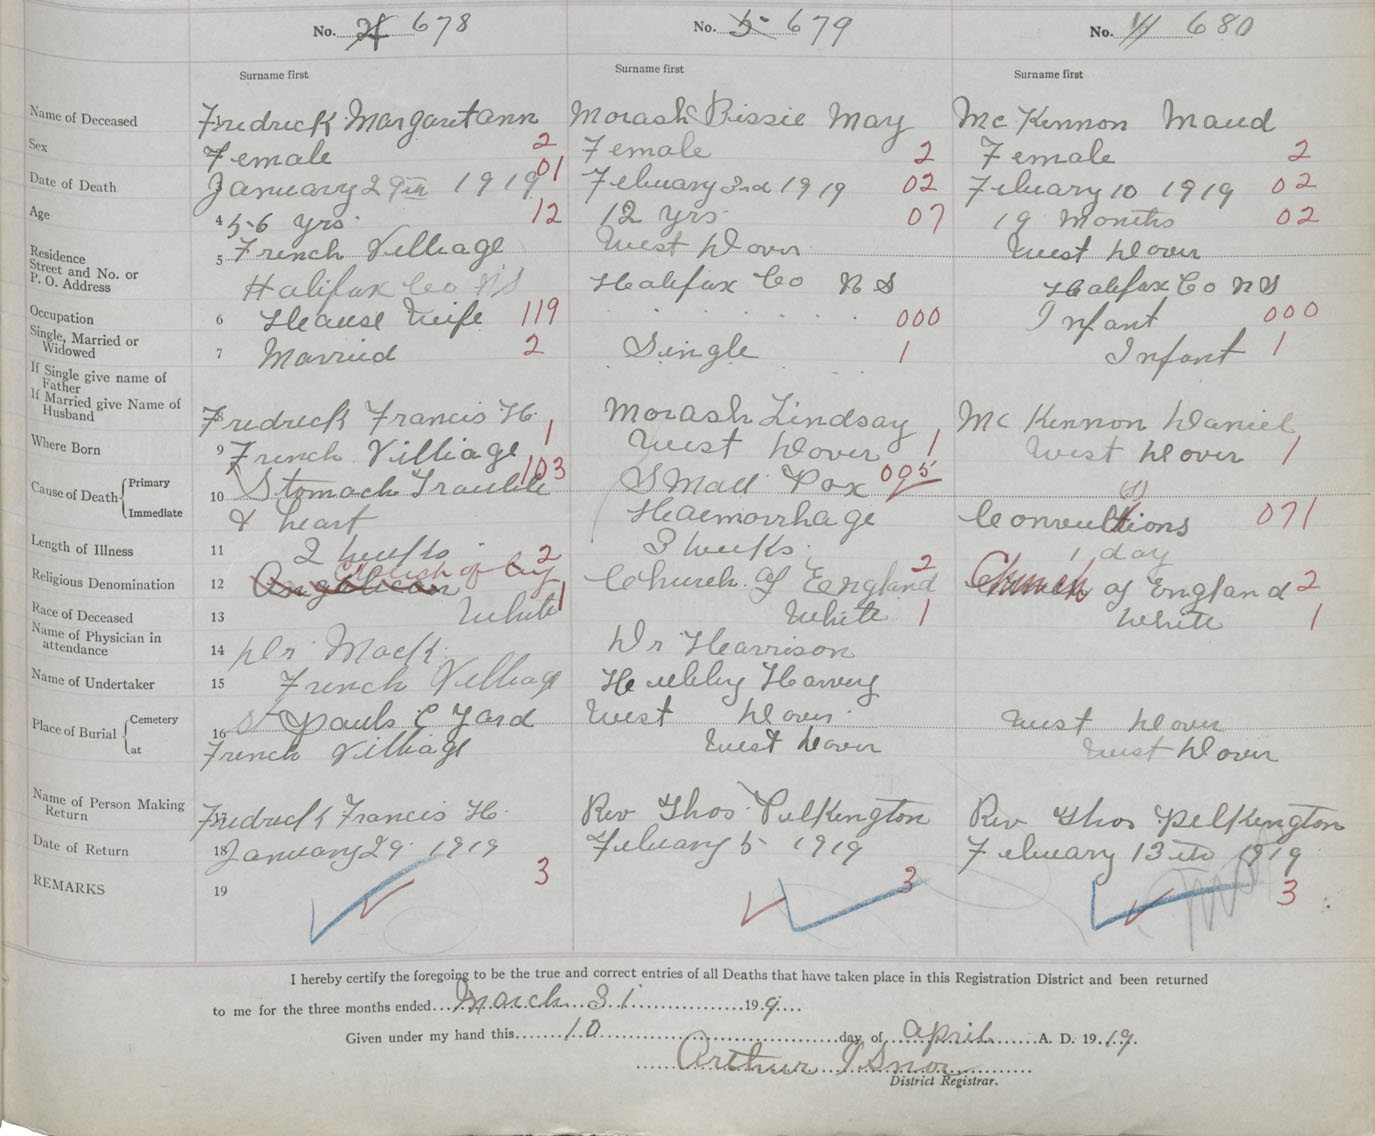 No. 4 678 No. 5 679 No. 680
Surname first Surname first Surname first
Name of Deceased Fredrick Margaretann Morash Bissie May Mc Kennon Maud
Sex Female 2 Female 2 Female 2
Date of Death January 29th 1919 01 Febuary 3rd 1919 02 Febuary 10 1919 02
Age 4 56 yrs 12 12 yrs 07 19 Months 02
Residence Street and No. or P. O. Address 5 French Villiage West Dover West Dover
Halifax Co N S Halifax Co N S Halifax Co N S
Occupation 6 House Wife 119 000 Infant 000
Single, Married or Widowed 7 Married 2 Single 1 Infant 1
If Single give name of Father
If Married give Name of Husband 8 Fredrick Francis H. Morash Lindsay Mc Kennon Daniel
Where Born 9 French Villiage 1 West Dover 1 West Dover 1
Cause of Death Primary 10 Stomach Trouble 103 Small Pox 095
Immediate & heart Haemorrhage Convultions 071
Length of Illness 11 2 weeks 3 weeks 1 day
Religious Denomination 12 Anglican Church of Eng 2 Church of England 2 Church of England 2
Race of Deceased 13 White 1 White 1 White 1
Name of Physician in attendance 14 Dr Mack Dr Harrison
Name of Undertaker 15 French Villiage Hubley Harvey
Place of Burial Cemetery 16 St Pauls C Yard West Dover West Dover
at French Villiage West Dover West Dover
Name of Person Making Return 17 Fredrick Francis H. Rev Thos Pilkington Rev Thos Pelkengton
Date of Return 18 January 29 1919 Febuary 5 1919 Febuary 13th 1919
REMARKS 19 3 3 3
I hereby certify the foregoing to be the true and correct entries of all Deaths that have taken place in this Registration District and been returned
to me for the three months ended March 31 19 9
Given under my hand this 10 day of April A. D. 19 19.
Arthur J Snow
District Registrar.